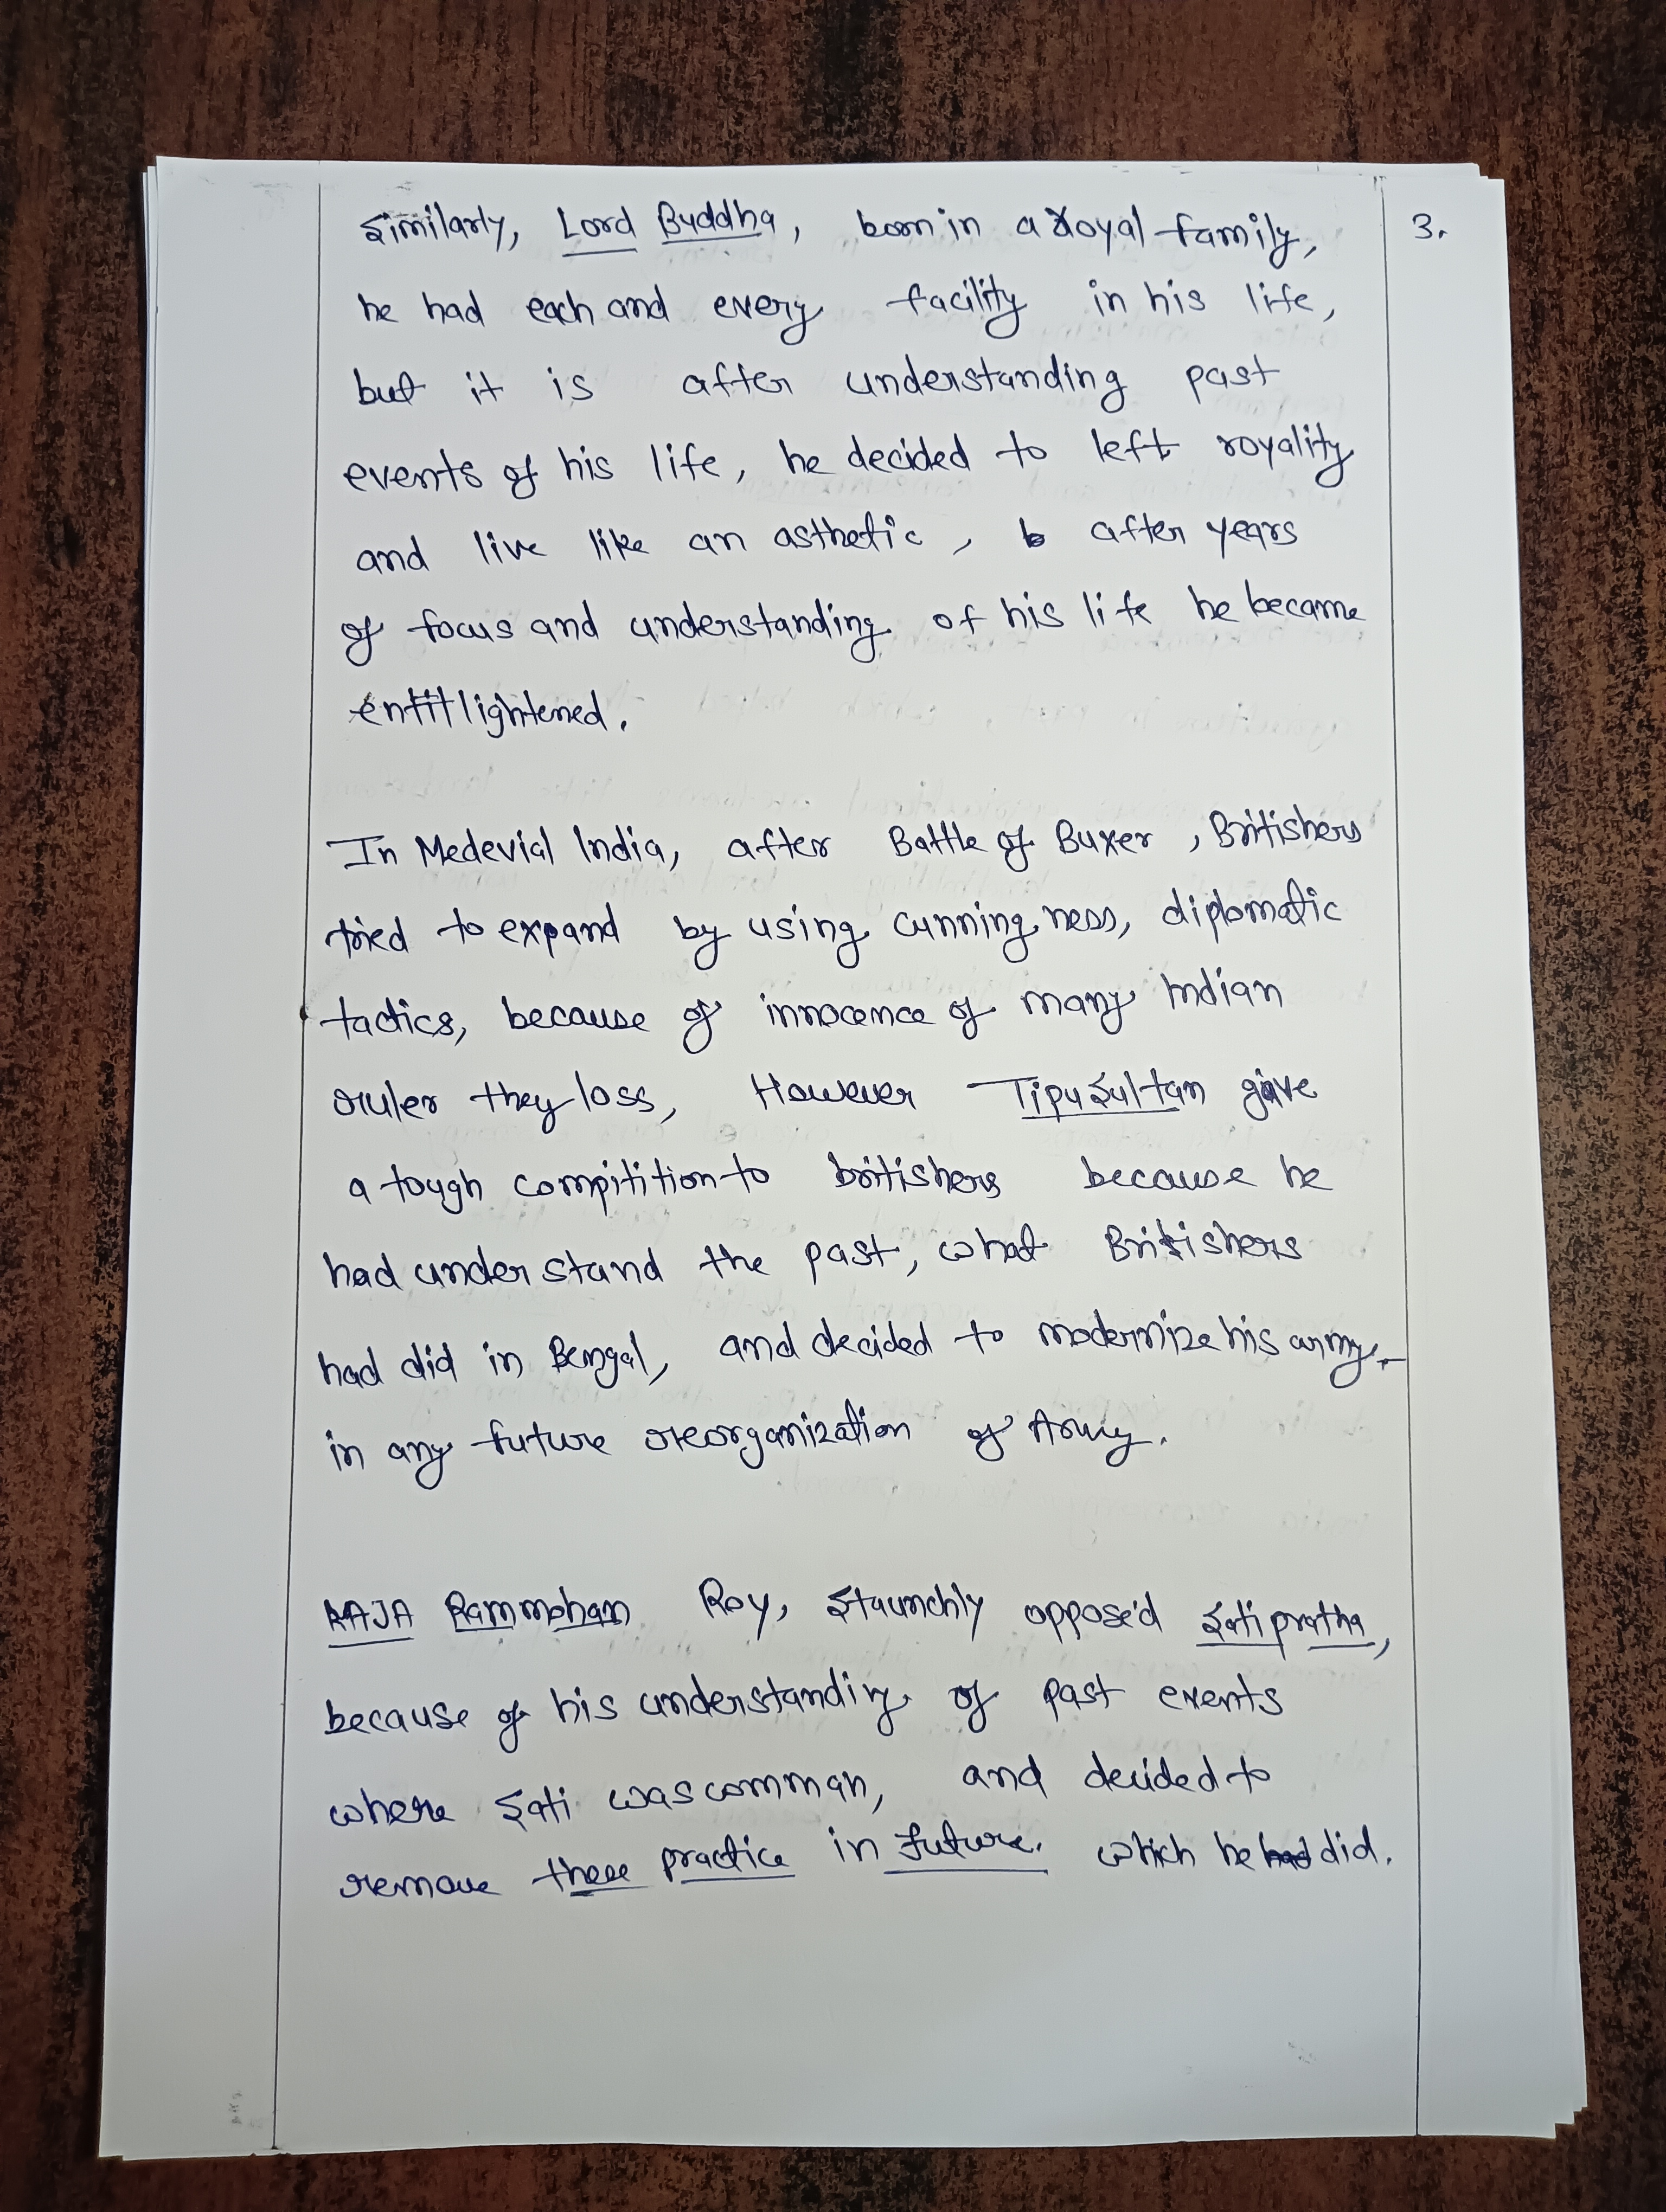 Similarly, Lord Buddha, born in a royal family,
3.
he had each and every facility in his life,
but it is after understanding past
events of his life, he decided to left royality
and live like an asthetic, after years
of focus and understanding of his life he became
enlightened.
In Medevial India, after Battle of Buxer, Britishers
tried to expand by using cunningness, diplomatic
tactics, because of innocence of many Indian
ruler they loss, However Tipu Sultan give
a tough compitition to britishers because he
had understand the past, what Britishers
had did in Bengal, and decided to modernize his army,
in any future reorganization of Army.
RAJA Rammohan Roy, staunchly opposed Sati pratha,
because of his understanding of past events
where Sati was comman, and decided to
remove these practice in future. which he did.